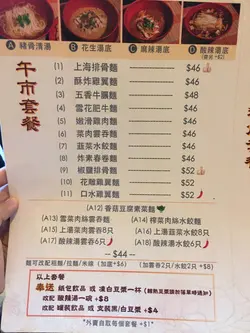 A 豬骨清湯 B 花生湯底 C 麻辣湯底 D 酸辣湯底
(需加 +$2)
午市套餐
(1) 上海排骨麵 $46
(2) 酥炸雞翼麵 $46
(3) 五香牛𦟌麵 $48
(4) 雪花肥牛麵 $46
(5) 嫩滑雞肉麵 $46
(6) 菜肉雲吞麵 $46
(7) 韮菜水餃麵 $46
(8) 炸素春卷麵 $46
(9) 椒鹽排骨麵 $52
(10) 花雕雞翼麵 $52
(11) 口水雞翼麵 $52
(A12) 香菇豆腐素菜麵
(A13) 雪菜肉絲雲吞麵 (A14) 榨菜肉絲水餃麵
(A15) 上湯菜肉雲吞8只 (A16) 上湯韮菜水餃8只
(A17) 酸辣湯雲吞6只 (A18) 酸辣湯水餃6只
$44
麵可改配粗麵/拉麵/米線 (加底+$6) (加雲吞2只/水餃2只 +$8)
以上套餐
奉送 紙包飲品 或 凍白豆漿一杯
改配 酸辣湯一碗 +$8
改配 罐裝飲品 或 支裝黑/白豆漿 +$4
*外賣自取每個套餐 +$1*